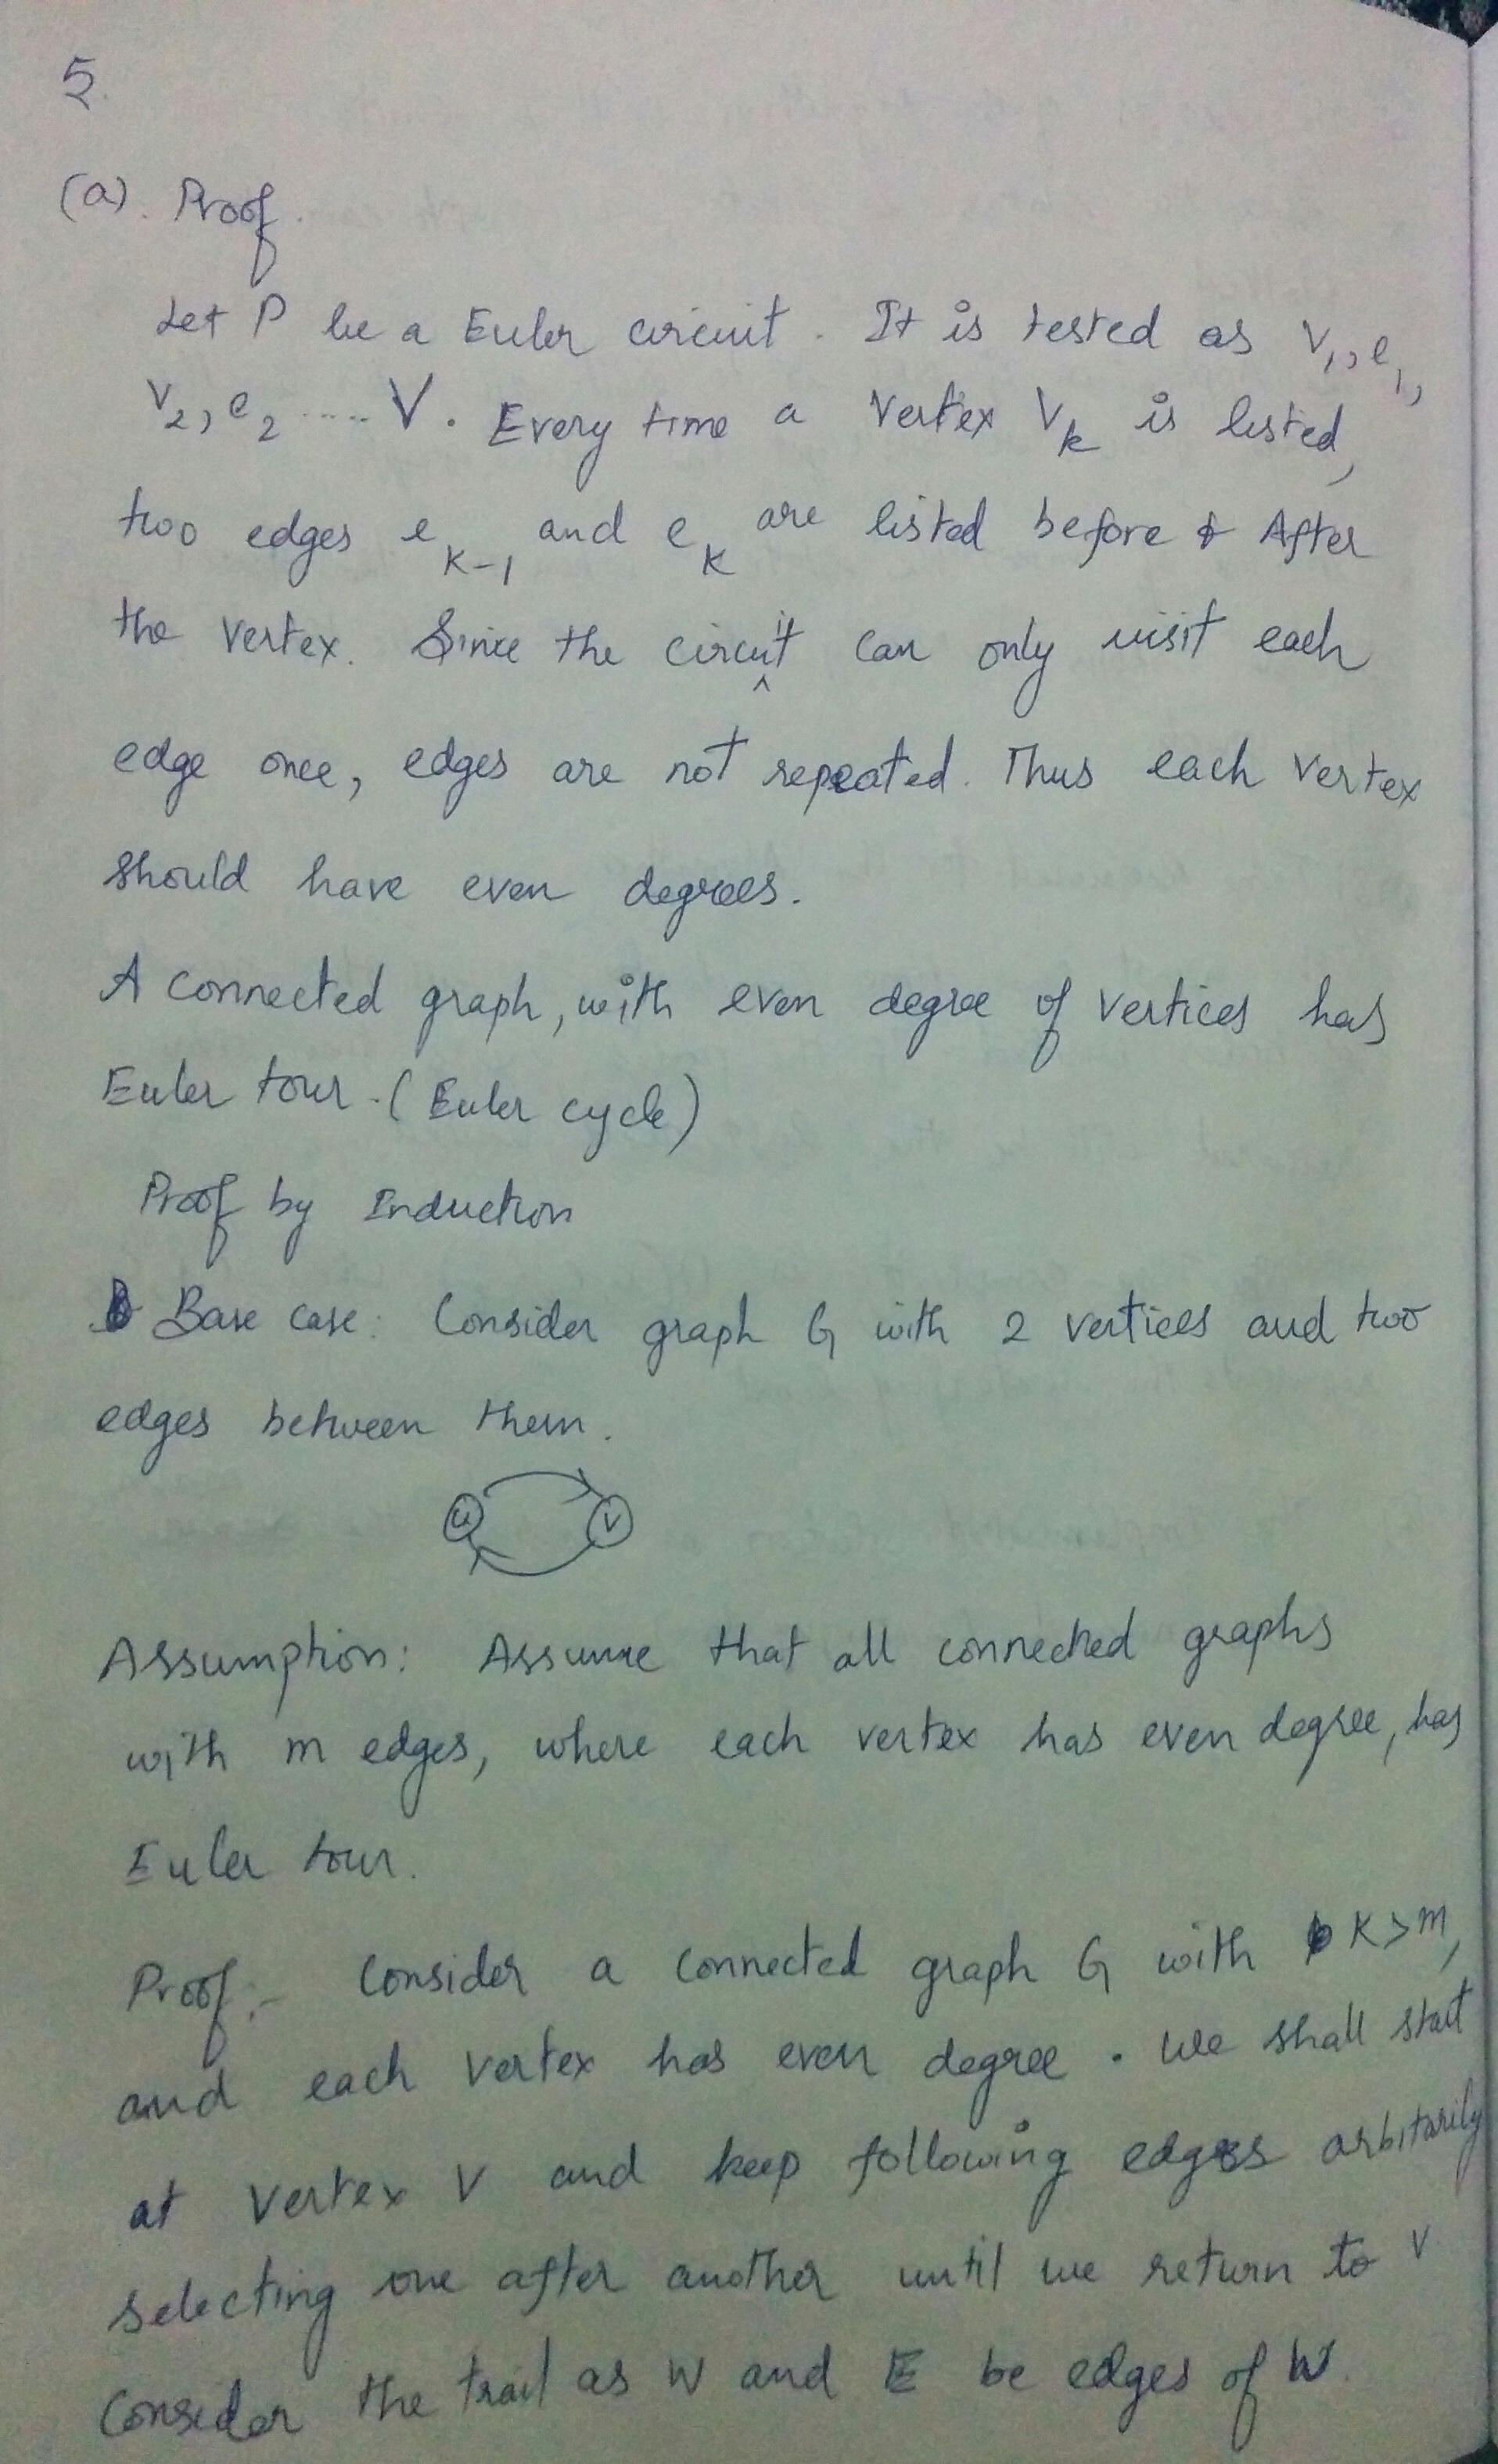 5.
(a). Proof.
Let P be a Euler circuit. It is tested as V1, e1,
V2, e2 ..... V. Every time a Vertex Vk is listed,
two edges eK-1 and eK are listed before & After
the vertex. Since the circuit can only visit each
edge once, edges are not repeated. Thus each vertex
should have even degrees.
A connected graph, with even degree of vertices has
Euler tour. (Euler cycle)
Proof by Induction
Base case: Consider graph G with 2 vertices and two
edges between them.
u v
Assumption: Assume that all connected graphs
with m edges, where each vertex has even degree, has
Euler tour.
Proof:- Consider a connected graph G with K>m,
and each vertex has even degree. We shall start
at vertex V and keep following edges arbitarily
selecting one after another until we return to V
Consider the trail as W and E be edges of W.